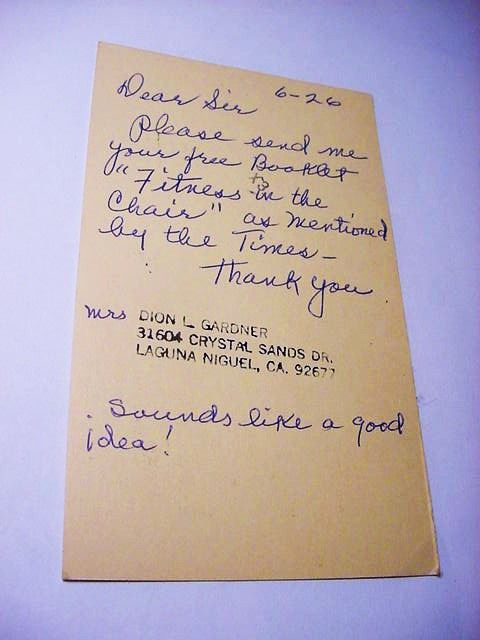 6-26
Dear Sir
Please send me
your free Booklet
"Fitness in the
Chair" as mentioned
by the Times -
Thank you
Mrs DION L. GARDNER
31604 CRYSTAL SANDS DR.
LAGUNA NIGUEL, CA. 92677
. Sounds like a good
idea!